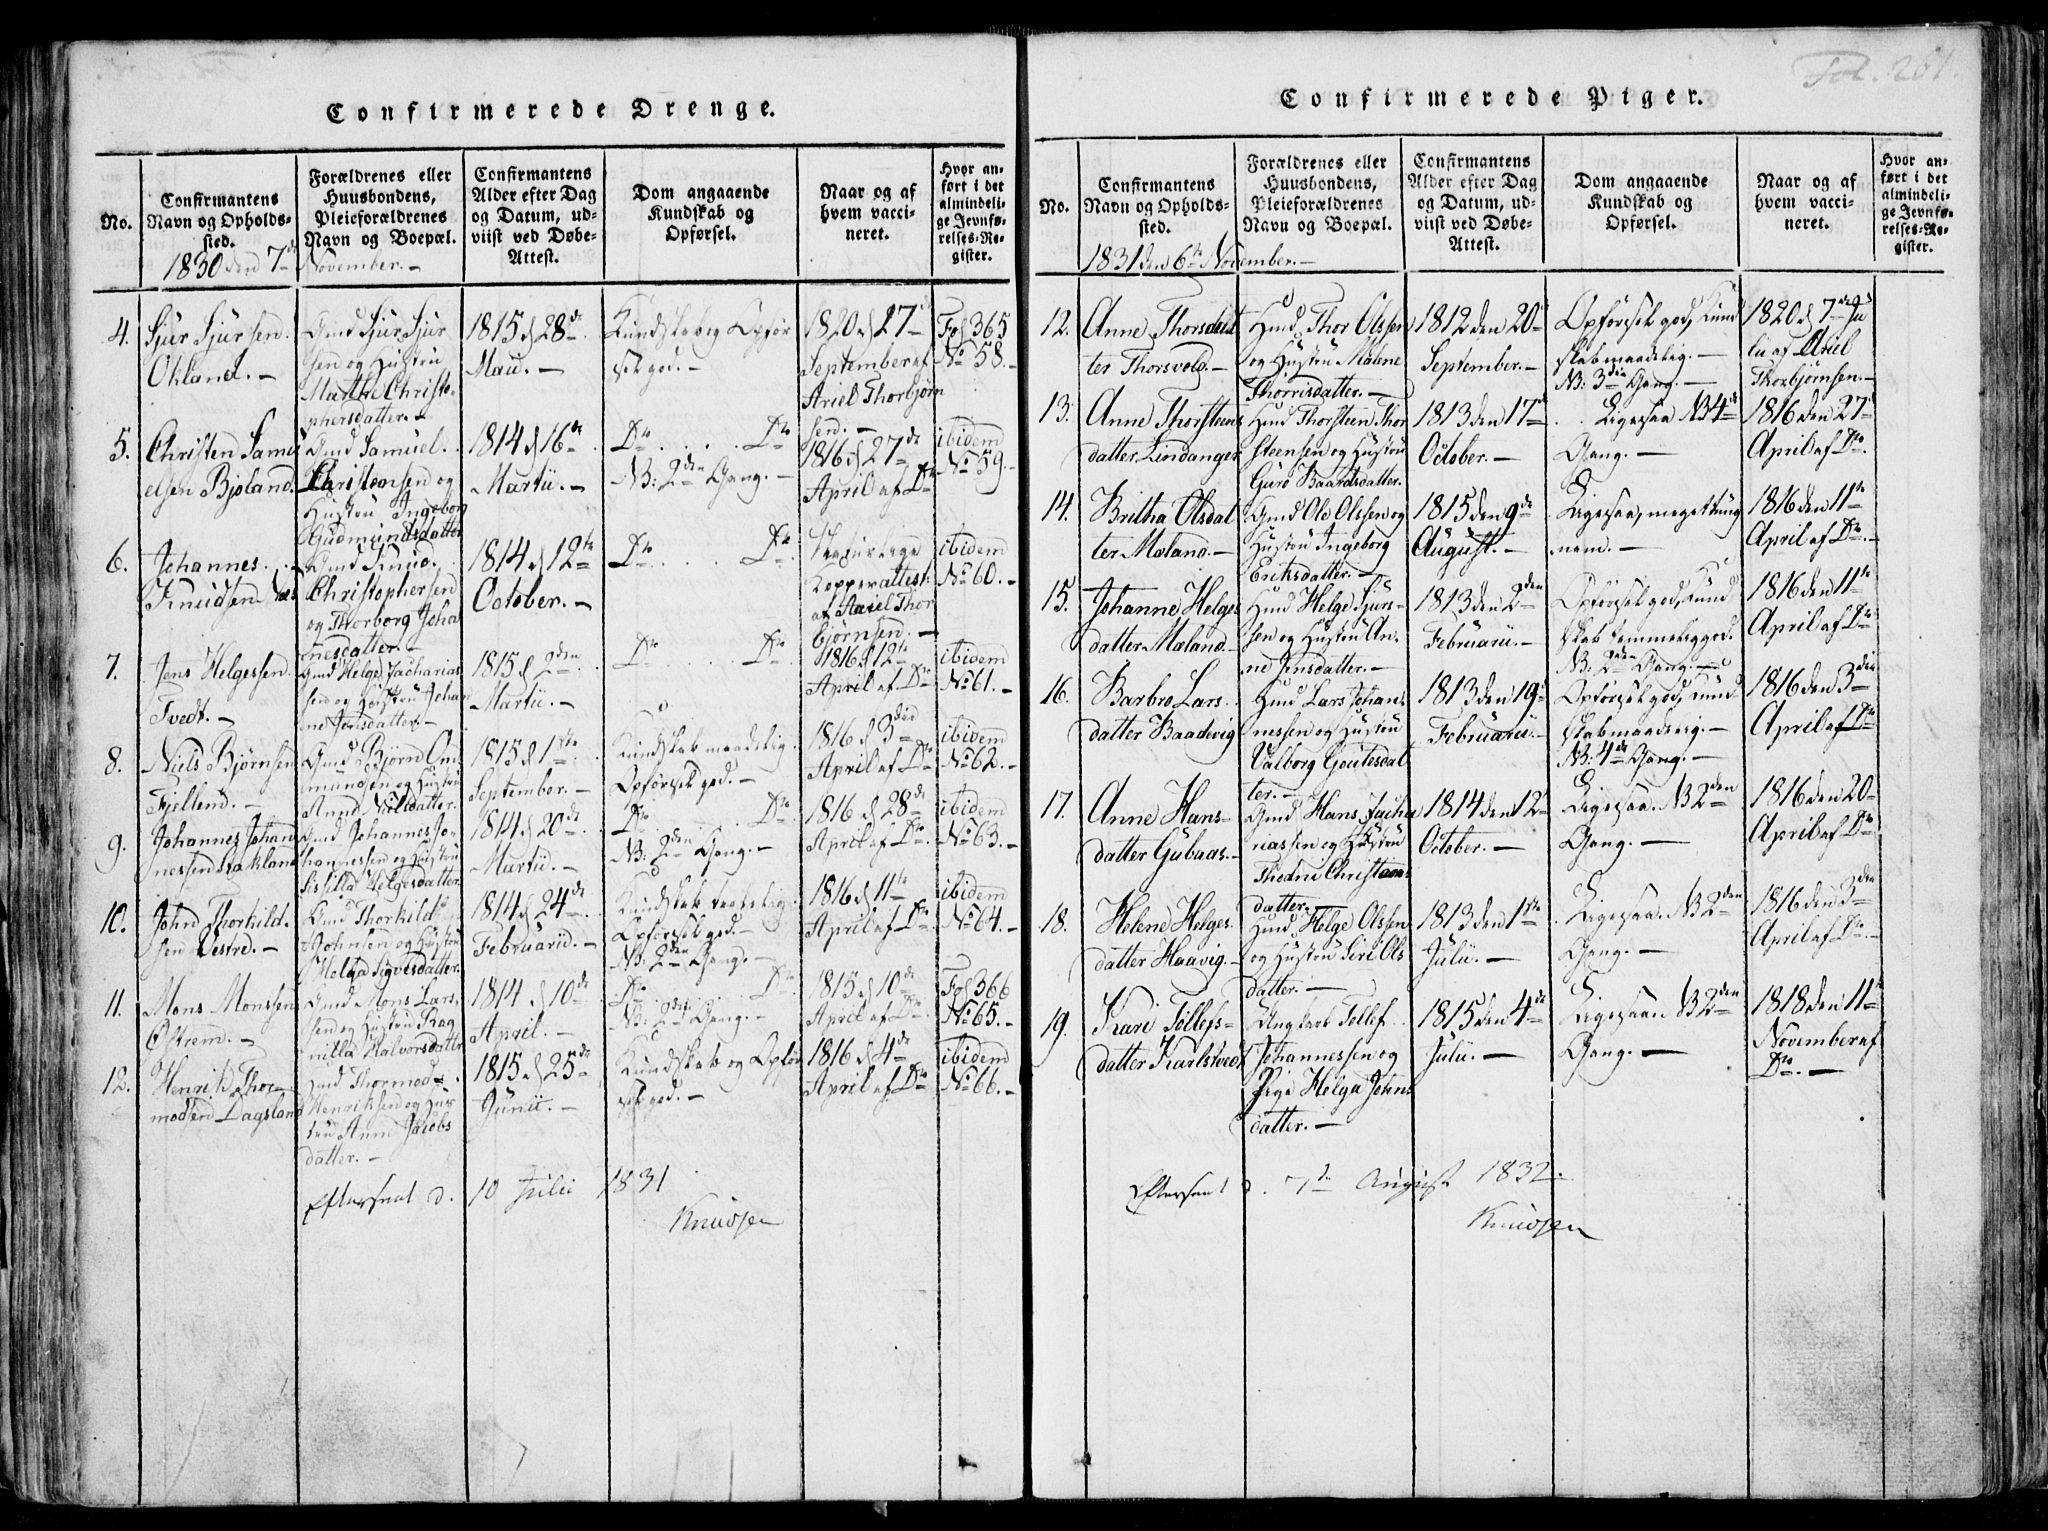 Confirmerede Drenge.
No.
Confirmantens
Navn og Opholds-
sted.
Forældrenes eller
Huusbondens,
Pleieforældrenes
Navn og Boepæl.
Confirmantens
Alder efter Dag
og Datum, ud-
viist ved Døbe-
Attest.
Dom angaaende
Kundskab og
Opførsel.
Naar og af
hvem vacci-
neret.
Hvor an-
ført i det
almindeli-
ge Jevnfø-
relses-Re-
gister.
1830 den 7de November. -
4.
Sjur Sjursen
Økland. -
Gmd Sjur Sjur
sen og Hustru
Marthe Christo-
phersdatter. -
1815 d 28de
Maii. -
Kundskab og Opfør
sel god. -
1820 d 27de
September af
Ariel Thorbjørn
sen. -
Fol 365
No 58. -
5.
Christen Samu
elsen Bjoland.
Gmd Samuel
Christensen og
Hustru Ingeborg
Gudmundsdatter
1814 d 16de
Martii. -
Do . . . . Do
NB: 2den Gang. -
1816 d 27de
April af Do
ibidem
No 59. -
6.
Johannes
Knudsen
Gmd Knud
Christophersen
og Thorborg Joha
nesdatter. -
1814 d 12te
October. -
Do . . . . Do
naturlige
Kopper attest:
af Ariel Thor
bjørnsen. -
ibidem
No 60. -
7.
Jens Helgessen
Tvedt. -
Gmd Helge Zacharias
sen og Hustru Johan
ne Jensdatter. -
1815 d 2den
Martii. -
Do . . . . Do
1816 d 12te
April af Do
ibidem
No 61. -
8.
Niels Bjørnsen
Fjelland. -
Gmd Bjørn Om
mundsen og Hustru
Anna Nielsdatter.
1815 d 1ste
September. -
Kundskab maadelig
Opførsel god. -
1816 d 3die
April af Do
ibidem
No 62. -
9.
Johannes Johan
nessen Stakland
Gmd Johannes Jo-
hannessen og Hustru
Sissilla Helgesdatter.
1814 d 20de
Martii. -
Do . . . . Do
NB: 2den Gang. -
1816 d 28de
April af Do
ibidem
No 63. -
10.
John Thorkild-
sen Vestre. -
Gmd Thorkild
Johnsen og Hustru
Helga Sigvesdatter.
1814 d 24de
Februarii. -
Kundskab
Opførsel god. -
NB: 2den Gang. -
1816 d 11te
April af Do
ibidem
No 64. -
11.
Mons Monssen
Østrem. -
Gmd Mons Lars-
sen og Hustru Rag
nilla Halvorsdatter
1814 d 10de
April. -
Do . . . . Do
NB: 2den Gang. -
1815 d 10de
April af Do
Fol 366
No 65. -
12.
Henrik Thor-
modsen Dagsland
Hmd Thormod
Henriksen og Hus
tru Anna Jacobs
datter. -
1815 d 25de
Junii. -
Kundskab og Opfør
sel god. -
1816 d 4de
April af Do
ibidem
No 66. -
Efterseet d. 10 Julii 1831
Knudsen
Fol. 261.
Confirmerede Piger.
No.
Confirmantens
Navn og Opholds-
sted.
Forældrenes eller
Huusbondens,
Pleieforældrenes
Navn og Boepæl.
Confirmantens
Alder efter Dag
og Datum, ud-
viist ved Døbe-
Attest.
Dom angaaende
Kundskab og
Opførsel.
Naar og af
hvem vacci-
neret.
Hvor an-
ført i det
almindeli-
ge Jevnfø-
relses-Re-
gister.
1831 den 6te November. -
12.
Anne Thorsdat
ter Thorsvold. -
Hmd Thor Olssen
og Hustru Malene
Thorrisdatter. -
1812 den 20de
September. -
Opførsel god, Kund
skab maadelig. -
NB: 3die Gang. -
1820 d 7de Ju
lii af Ariel
Thorbjørnsen. -
13.
Anne Thorsteens
datter Lindanger
Hmd Thorsteen Thor
steensen og Hustru
Guro Baardsdatter.
1813 den 17de
October. -
Ligesaa NB 4de
Gang. -
1816 den 27de
April af Do.
14.
Britha Olsdat
ter Mæland. -
Gmd Ole Olssen og
Hustru Ingeborg
Eriksdatter. -
1815 den 9de
August. -
Ligesaa, meget tung
nem. -
1816 den 11te
April af Do. -
15.
Johanne Helges
datter Mæland. -
Hmd Helge Sjurs-
sen og Hustru An-
ne Jensdatter. -
1813 den 2den
Februarii. -
Opførsel god, Kund
skab temmelig god.
NB: 2den Gang. -
1816 den 11te
April af Do
16.
Barbro Lars
datter Baadevig
Hmd Lars Johan-
nessen og Hustru
Valborg Goutesdat
ter. -
1813 den 19de
Februarii. -
Opførsel god, Kund
skab maadelig. -
NB: 4de Gang. -
1816 den 3die
April af Do
17.
Anne Hans-
datter Gubaas. -
Gmd Hans Zacha
riassen og Hustru
Thedni Christians
datter. -
1814 den 12te
October. -
Ligesaa. NB 2den
Gang. -
1816 den 20de
April af Do
18.
Helene Helges
datter Haavig. -
Hmd Helge Olssen
og Hustru Siri Ols
datter. -
1813 den 1ste
Julii. -
Ligesaa. NB 2den
Gang. -
1816 den 3die
April af Do. -
19.
Kari Tollefs-
datter Karlstvedt
Ungkarl Tollef
Johannessen og
Pige Helga Johns
datter. -
1815 den 4de
Julii. -
Ligesaa. NB 2den
Gang. -
1818 den 11te
November af
Do. -
Efterseet d. 7de August 1832.
Knudsen